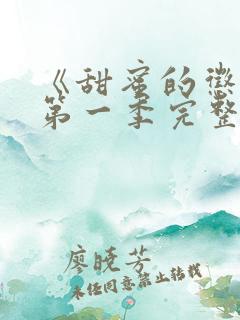 《甜蜜的惩
第一季完整
廖晓芳
未经同意禁止转载